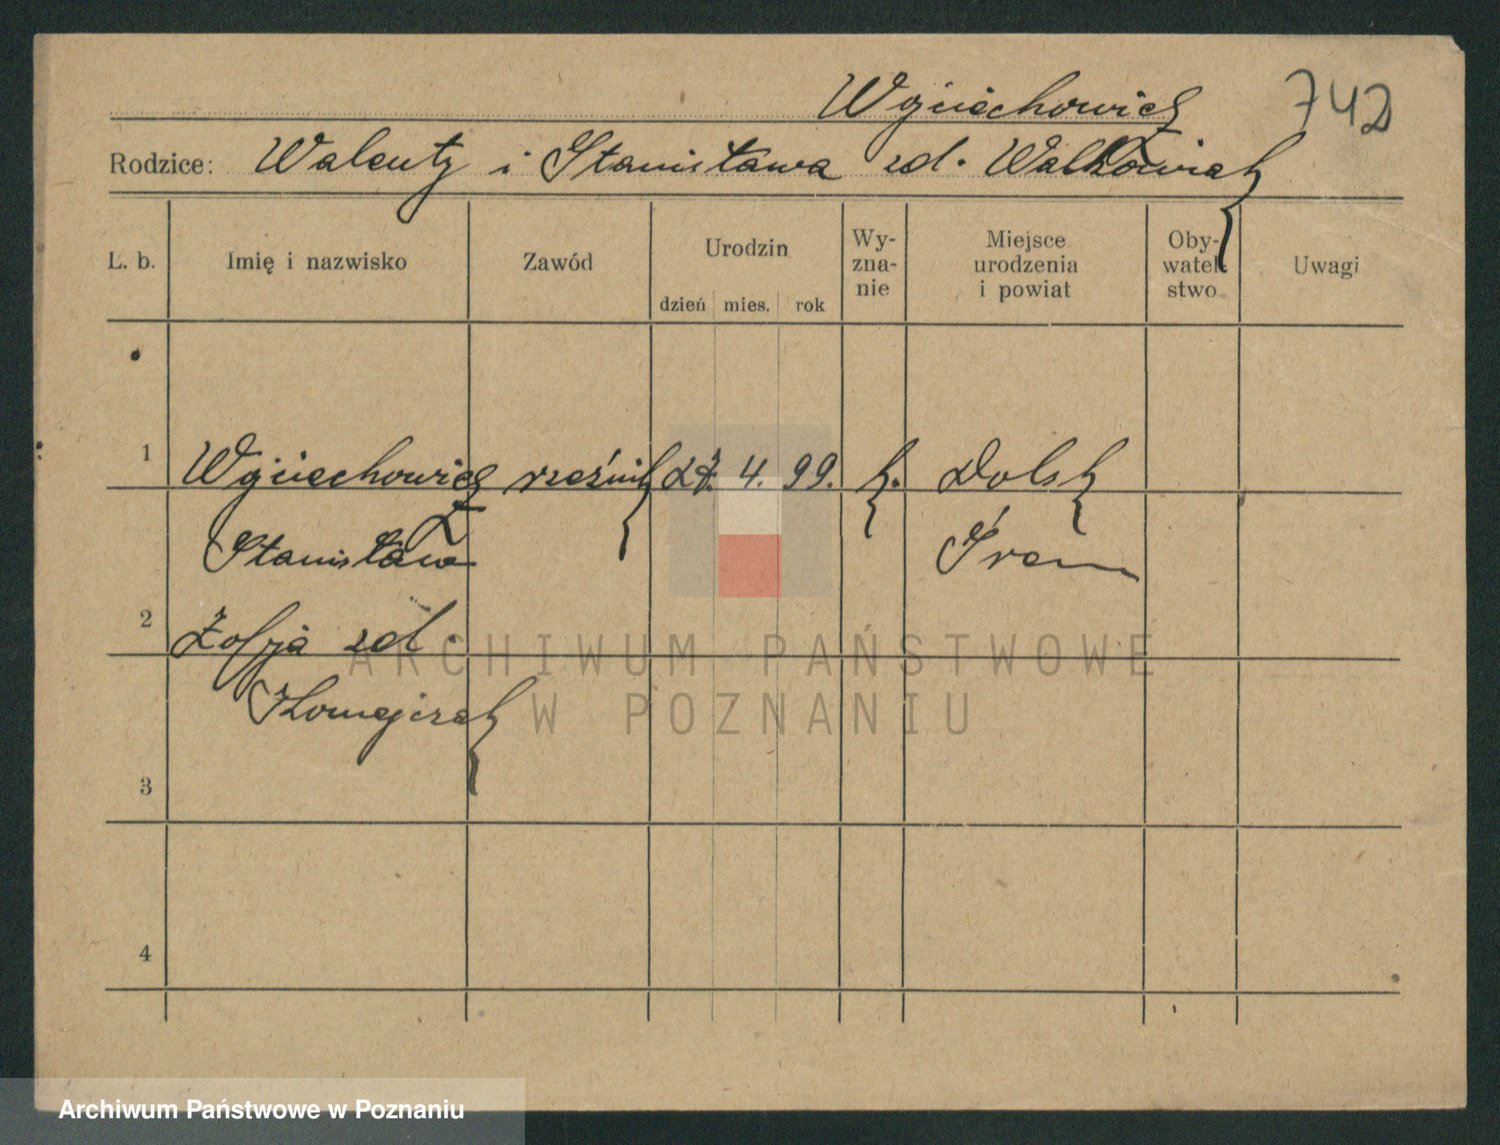 Wojciechowicz 742
Rodzice: Walenty i Stanisława zd. Walkowiak
L. b. Imię i nazwisko Zawód Urodzin Wy-zna-nie Miejsce urodzenia i powiat Oby-watel-stwo Uwagi
dzień mies. rok
1 Wojciechowicz rzeźnik 4. 99. k. Dolsk
Stanisław Śrem
2 Zofja zd.
3
4
ARCHIWUM PAŃSTWOWE
W POZNANIU
Archiwum Państwowe w Poznaniu